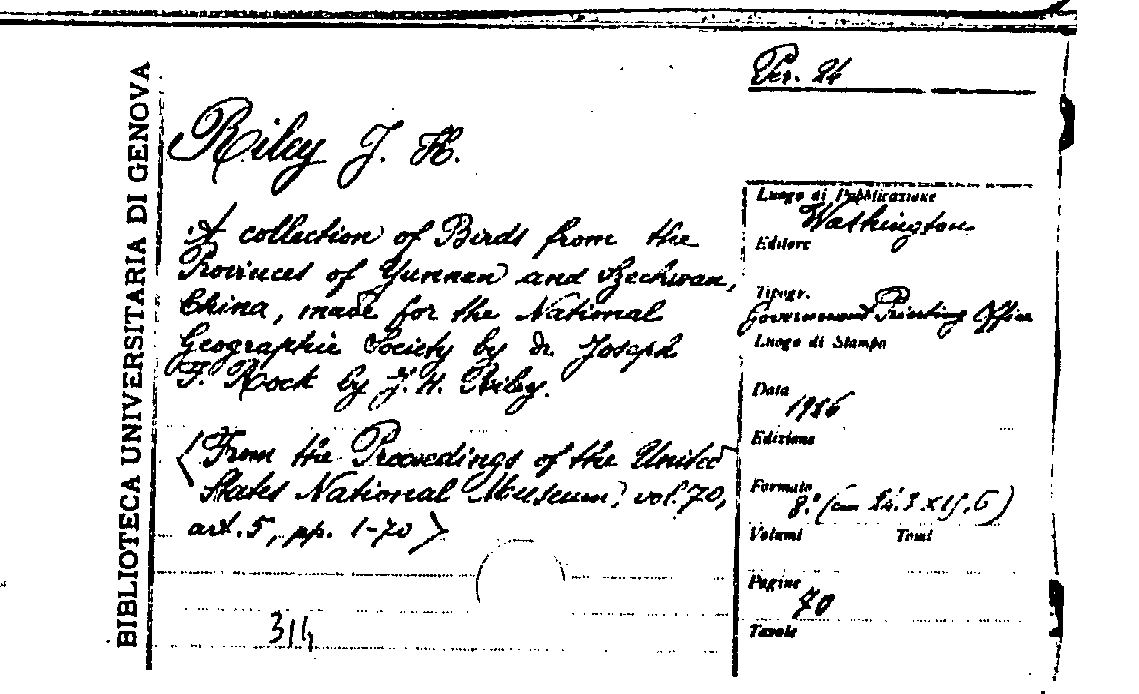 BIBLIOTECA UNIVERSITARIA DI GENOVA
Per. 24
Riley J. H.
A collection of Birds from the
Provinces of Yunnan and Szechwan,
China, made for the National
Geographic Society by dr. Joseph
F. Rock by J. H. Riley.
(From the Proceedings of the United
States National Museum, vol. 70,
art. 5, pp. 1-70)
314
Luogo di Pubblicazione
Washington
Editore
Tipogr.
Government Printing Office
Luogo di Stampa
Data
1926
Edizione
Formato
8.° (cm 24.3 x 15,6)
Volumi Tomi
Pagine
70
Tavole